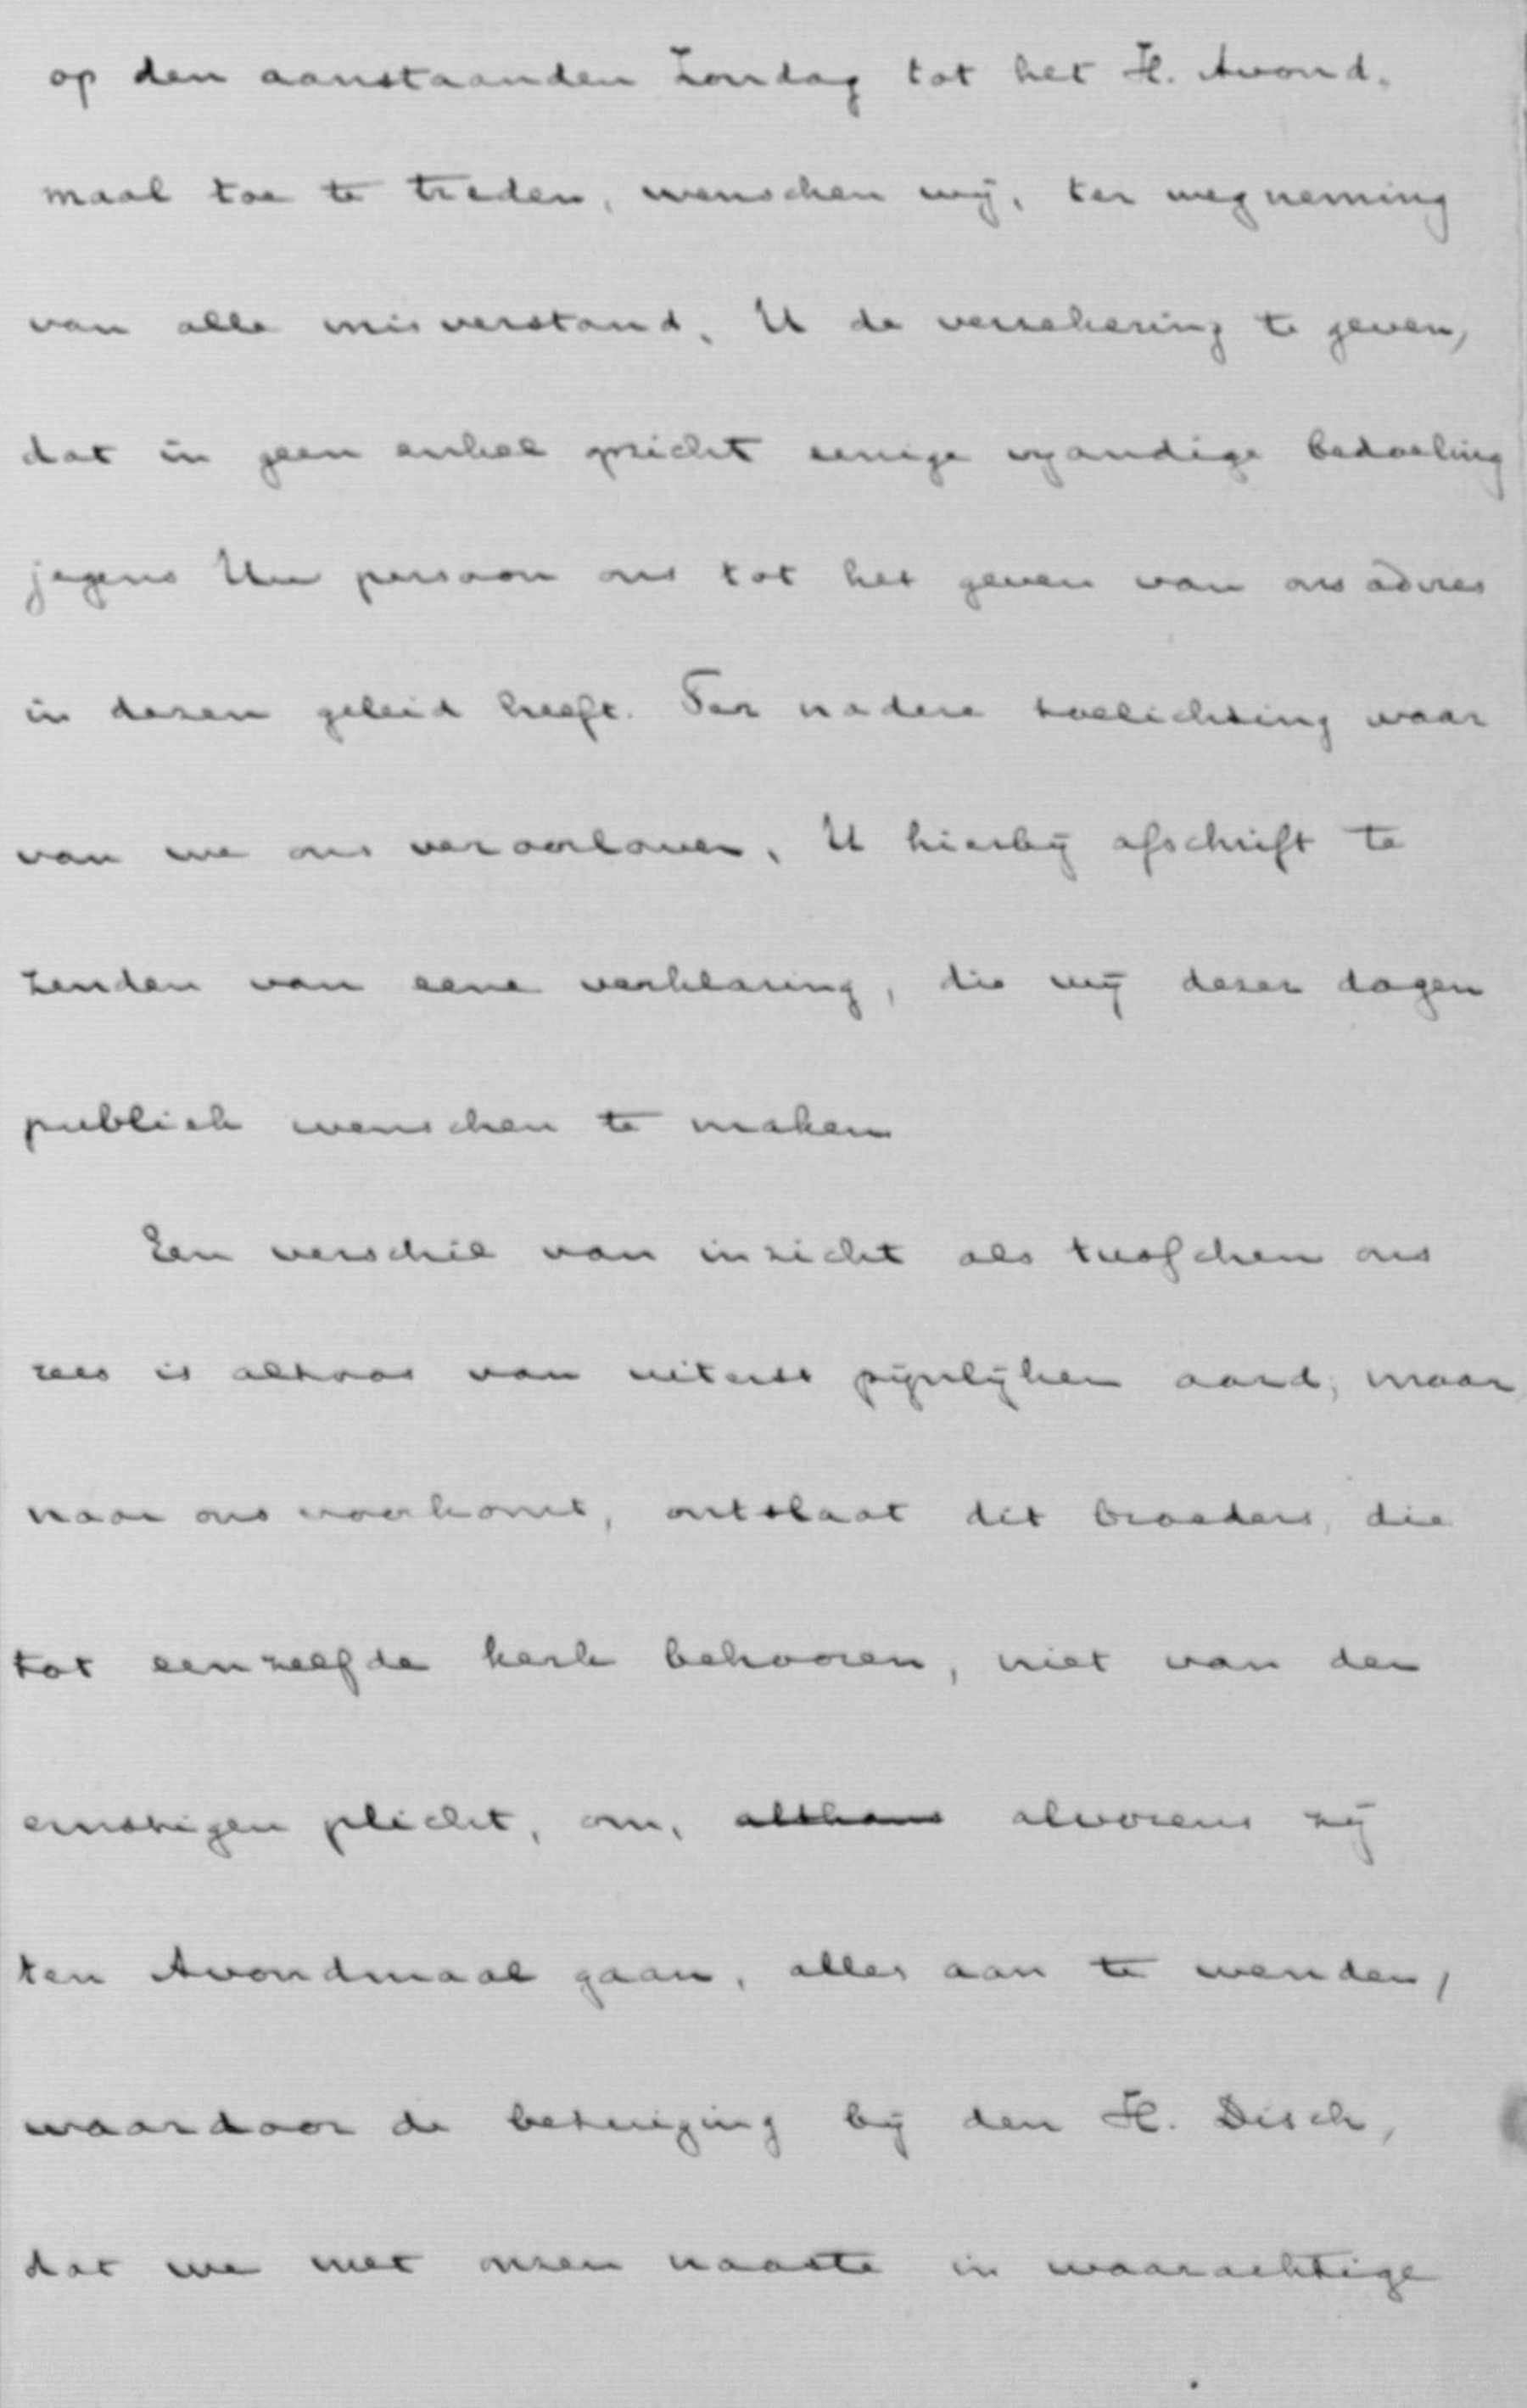 op den aanstaanden Zondag tot het H. Avond-
maal toe te treden, wenschen wij, ter wegneming
van alle misverstand, U de verzekering te geven,
dat in geen enkel opzicht eenige vyandige bedoeling
jegens Uw persoon ons tot het geven van ons advies
in dezen geleid heeft. Ter nadere toelichting waar
van we ons veroorloven, U hierbij afschrift te
zenden van eene verklaring, die wij dezer dagen
publiek wenschen te maken
Een verschil van inzicht als tusschen ons
rees is altoos van uiterst pijnlijken aard; maar,
naar ons voorkomt, ontslaat dit broeders, die
tot eenzelfde kerk behooren, niet van den
ernstigen plicht, om, althans alvorens zij
ten Avondmaal gaan, alles aan te wenden,
waardoor de betuiging bij den H. Disch,
dat we met onzen naaste in waarachtige